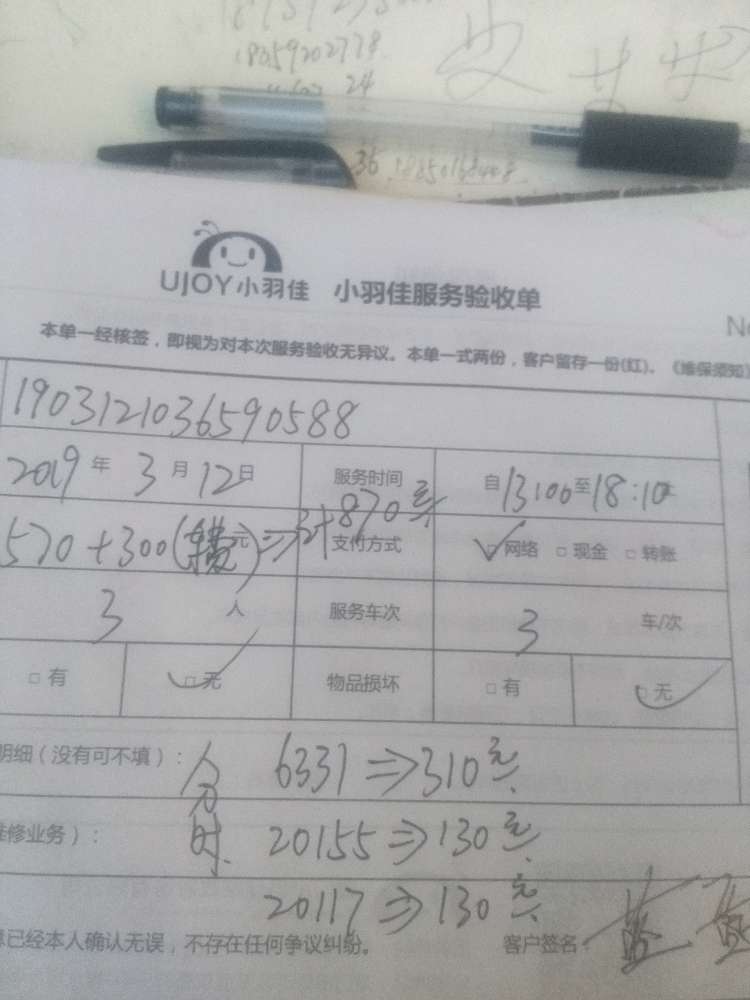 18059202778
24
36 18650168448
UJOY小羽佳 小羽佳服务验收单
No
本单一经核签，即视为对本次服务验收无异议。本单一式两份，客户留存一份(红)。《维保须知》
1903121036590588
2019 年 3 月 12 日 服务时间 自 13:00 至 18:10
570+300(车费)元 ⇒ 共870元 支付方式 网络 □ 现金 □ 转账
3 人 服务车次 3 车/次
□ 有 □ 无 物品损坏 □ 有 □ 无
明细（没有可不填）： 6331 ⇒ 310元
维修业务）： 时 20155 ⇒ 130元
20117 ⇒ 130元
已经本人确认无误，不存在任何争议纠纷。 客户签名：